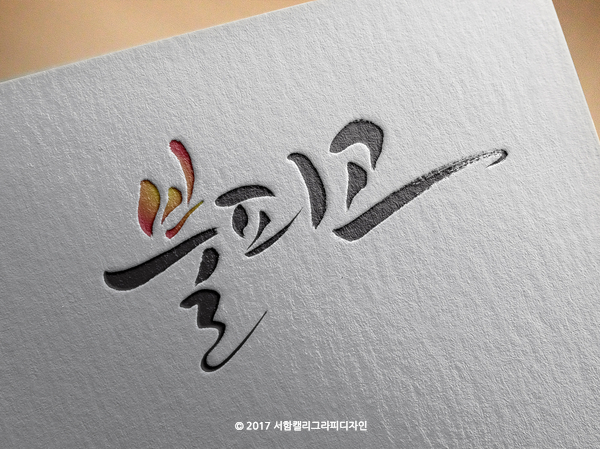 불피고
© 2017 서함캘리그라피디자인